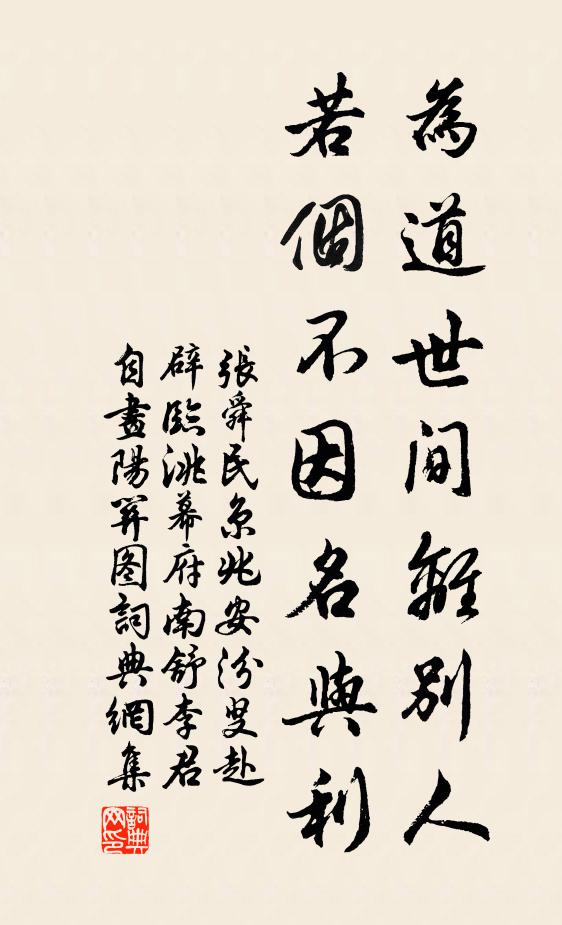 為道世間離別人
若個不因名與利
張舜民京兆安汾叟赴
辟臨洮幕府南舒李君
自畫陽關圖詞典網集
詞典網印